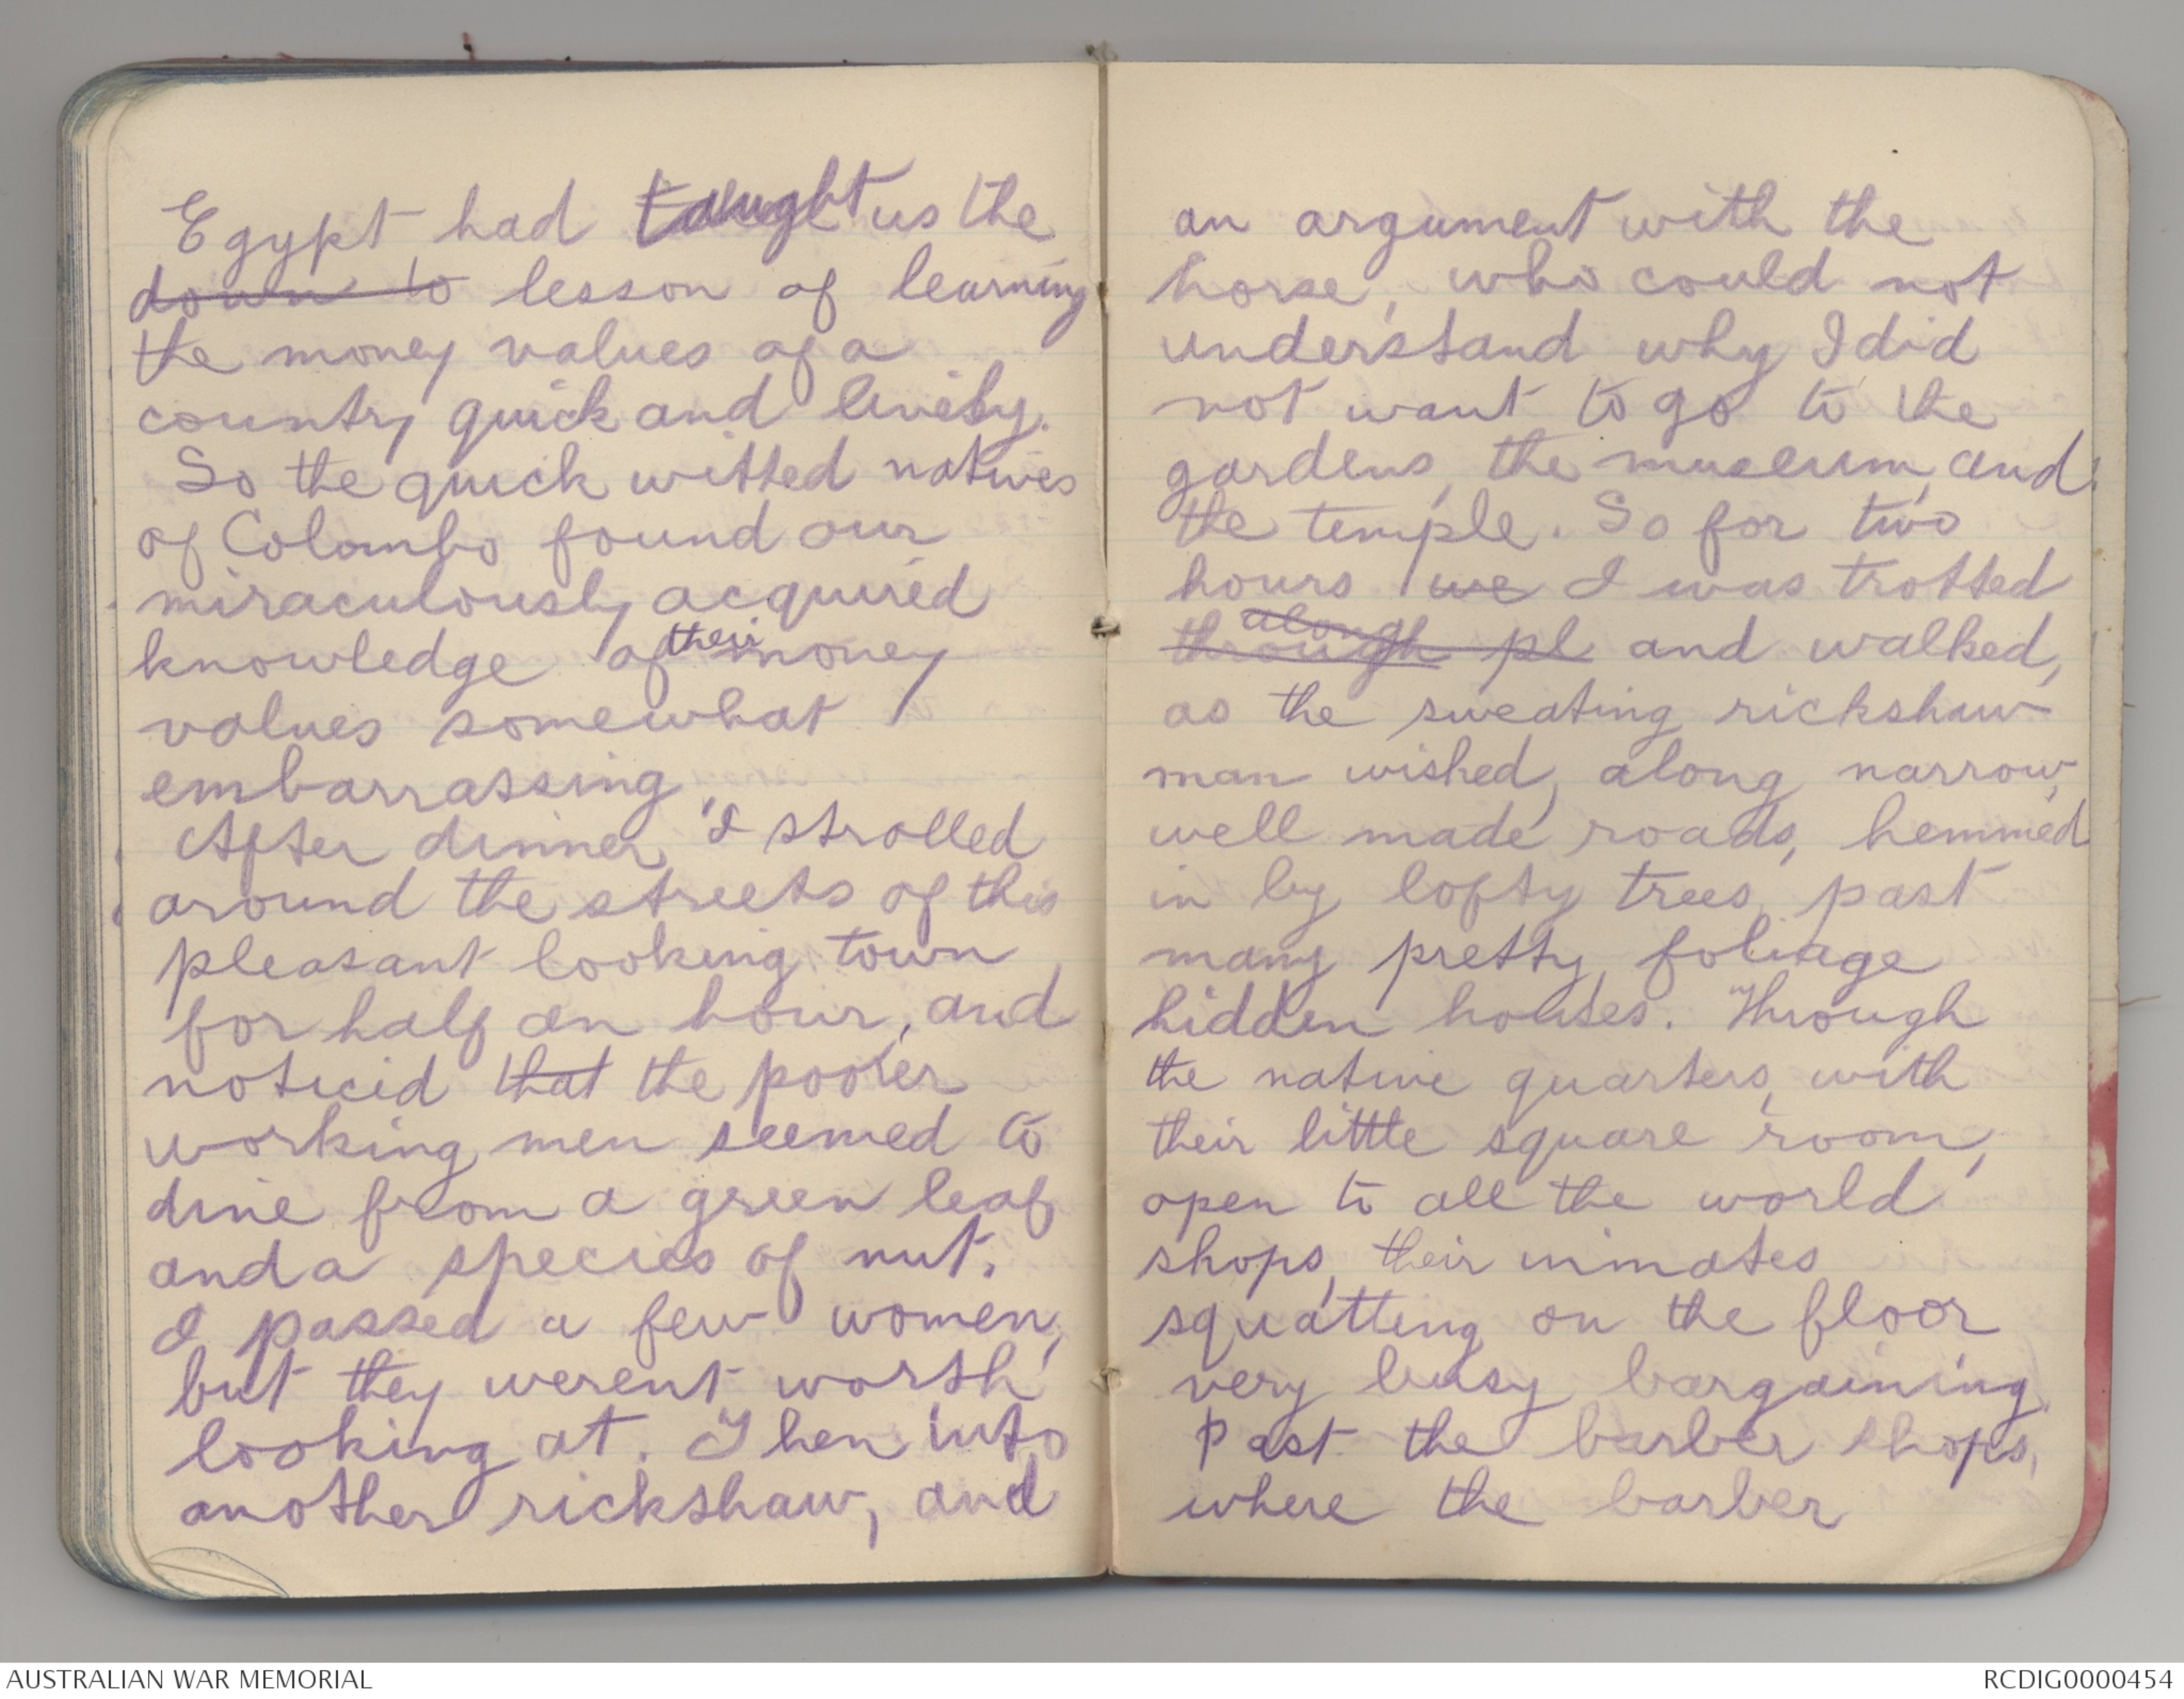 Egypt had taught us the
down to lesson of learning
the money values of a
country quick and lively.
So the quick witted natives
of Colombo found our
miraculously acquired
knowledge of their money
values somewhat
embarrassing.
After dinner, I strolled
around the streets of this
pleasant looking town
for half an hour, and
noticed that the poorer
working men seemed to
dine from a green leaf
and a species of nut.
I passed a few women,
but they werent worth
looking at. Then into
another rickshaw, and
an argument with the
horse, who could not
understand why I did
not want to go to the
gardens, the museum, and
the temple. So for two
hours we I was trotted
through along pl and walked,
as the sweating rickshaw
man wished, along narrow,
well made roads, hemmed
in by lofty trees, past
many pretty, foliage
hidden houses. Through
the native quarters, with
their little square room,
open to all the world
shops, their inmates
squatting on the floor
very busy bargaining.
Past the barber shops,
where the barber
AUSTRALIAN WAR MEMORIAL
RCDIG0000454